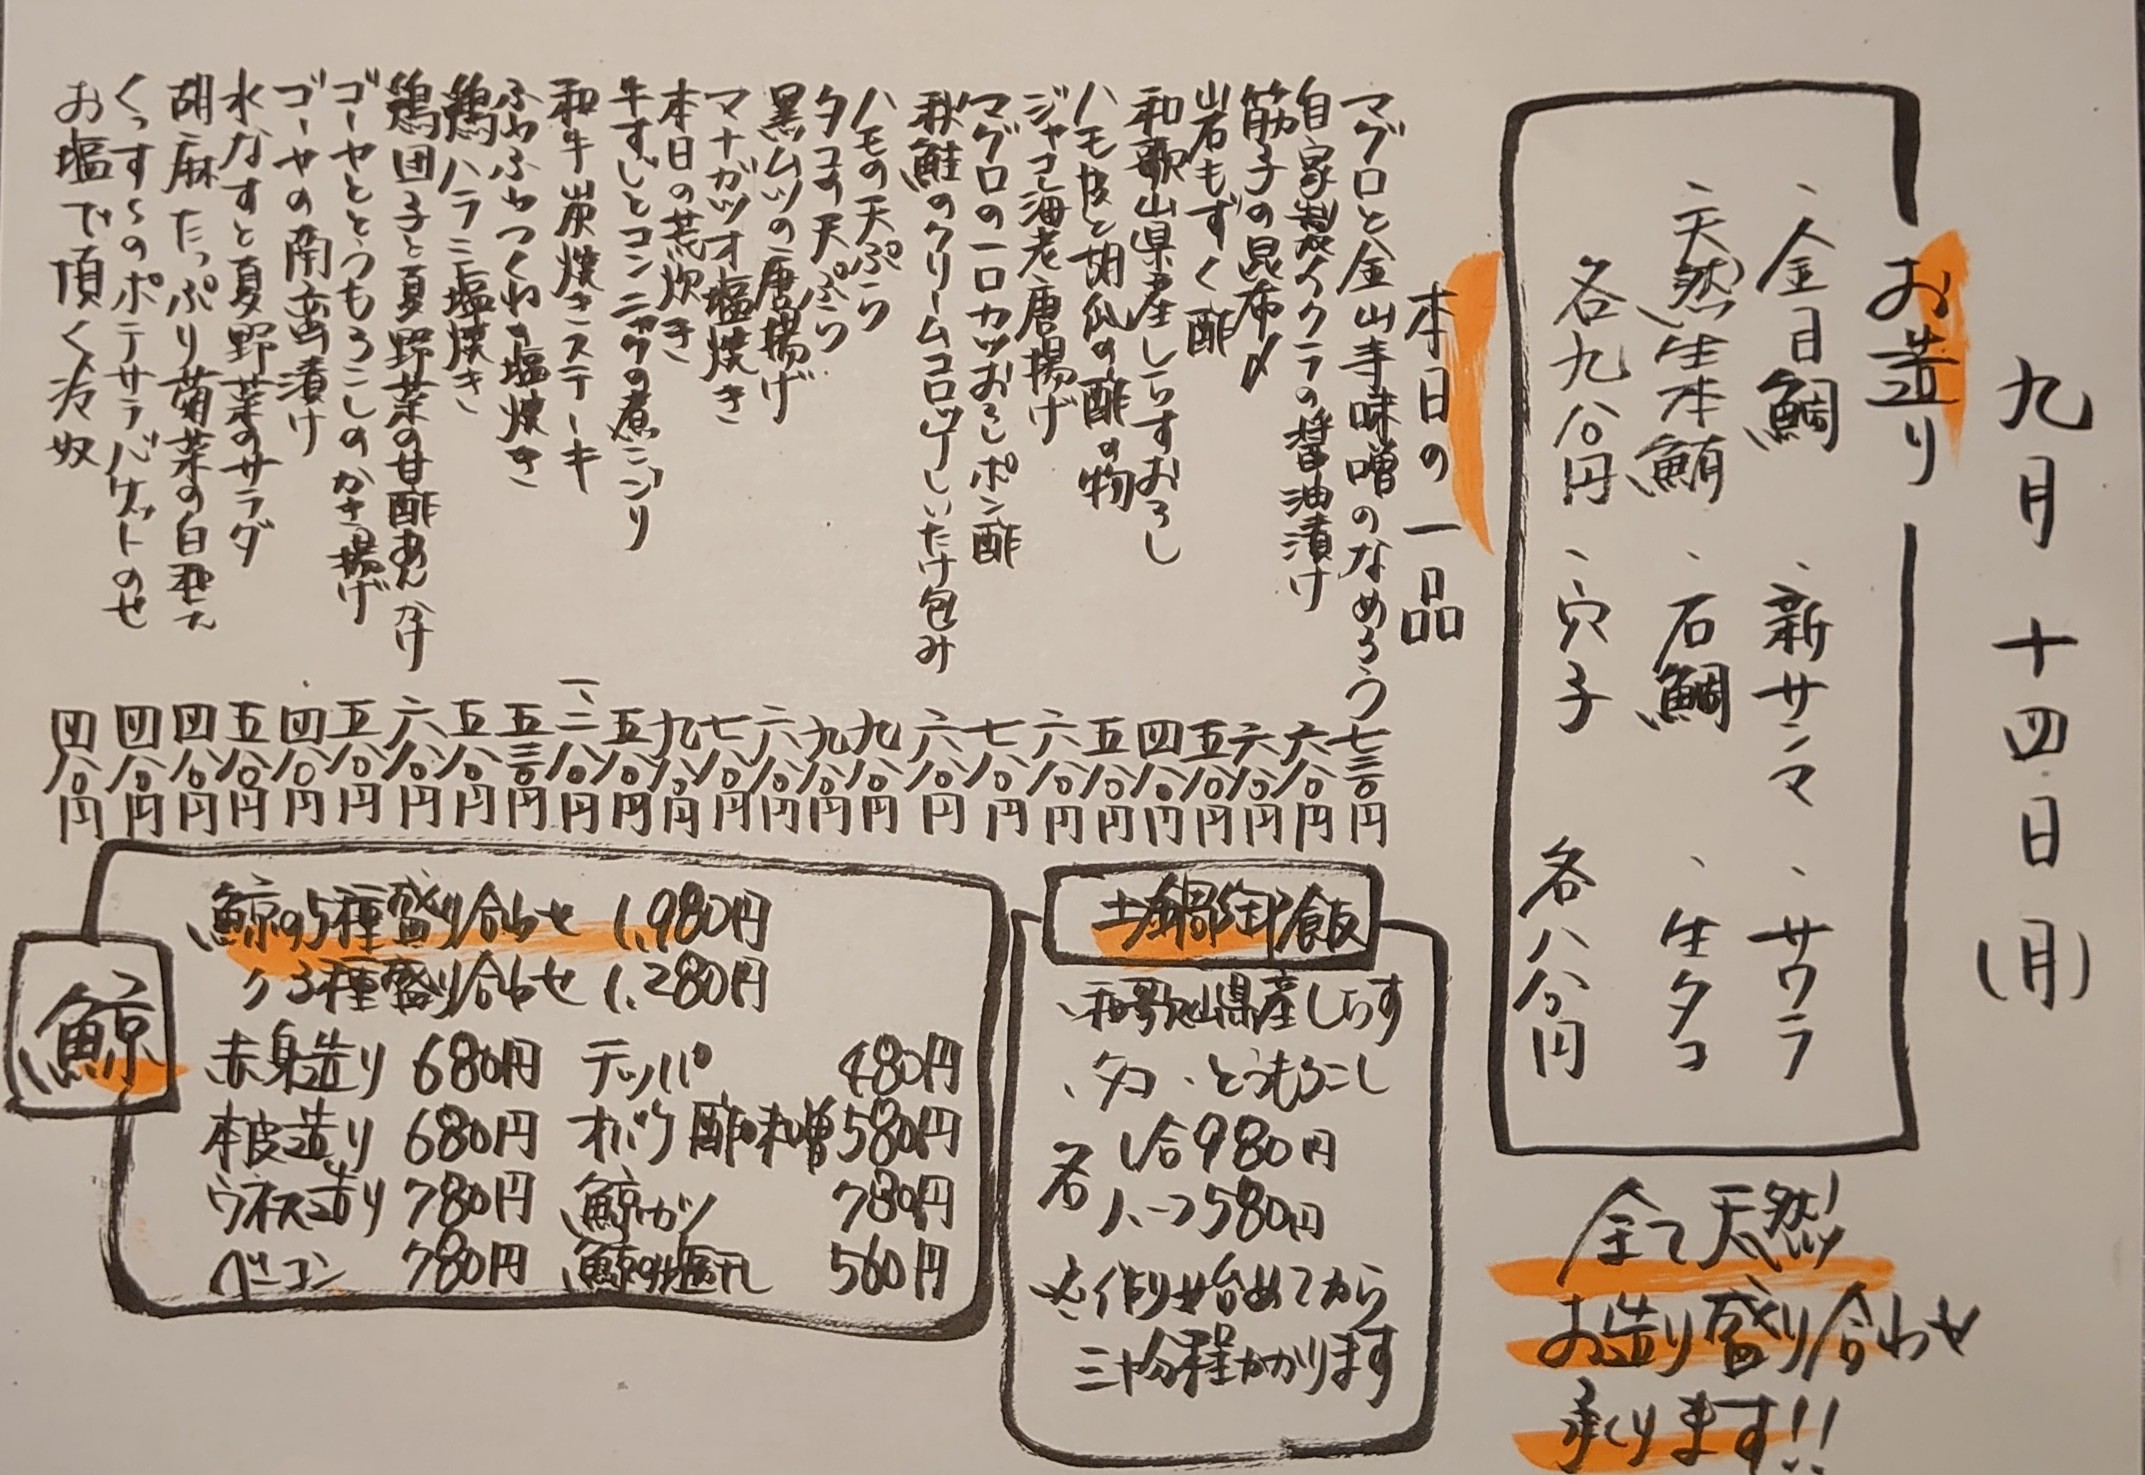 九月十四日(月)
お造り
、金目鯛 、新サンマ 、サワラ
、天然生本鮪 、石鯛 、生タコ
各九八〇円 、穴子 各八八〇円
全て天然
お造り盛り合わせ
承ります!!
本日の一品
マグロと金山寺味噌のなめろう 七三〇円
自家製イクラの醤油漬け 六八〇円
筋子の昆布〆 六八〇円
岩もずく酢 五八〇円
和歌山県産しらすおろし 四八〇円
ハモ皮と胡瓜の酢の物 五八〇円
ジャコ海老唐揚げ 六八〇円
マグロの一口カツおろしポン酢 七八〇円
秋鮭のクリームコロッケしいたけ包み 六八〇円
ハモの天ぷら 九八〇円
タコの天ぷら 九八〇円
黒ムツの唐揚げ 六八〇円
マナガツオ塩焼き 七八〇円
本日の荒炊き 九八〇円
牛すじとコンニャクの煮こごり 五八〇円
和牛炭焼きステーキ 一、二八〇円
ふわふわつくね塩焼き 五三〇円
鶏ハラミ塩焼き 五八〇円
鶏団子と夏野菜の甘酢あんかけ 六八〇円
ゴーヤととうもろこしのかき揚げ 五八〇円
ゴーヤの南蛮漬け 四八〇円
水なすと夏野菜のサラダ 五八〇円
胡麻たっぷり菊菜の白和え 四八〇円
くっすんのポテサラバケットのせ 四八〇円
お塩で頂く冷奴 四八〇円
土鍋御飯
、和歌山県産しらす
、タコ 、とうもろこし
各 一合980円
ハーフ580円
※作り始めてから
三十分程かかります
鯨
鯨の5種盛り合わせ 1,980円
〃 3種盛り合わせ 1,280円
赤身造り 680円 テッパ 480円
本皮造り 680円 オバケ酢味噌 580円
ウネス造り 780円 鯨カツ 780円
ベーコン 780円 鯨の塩干し 560円